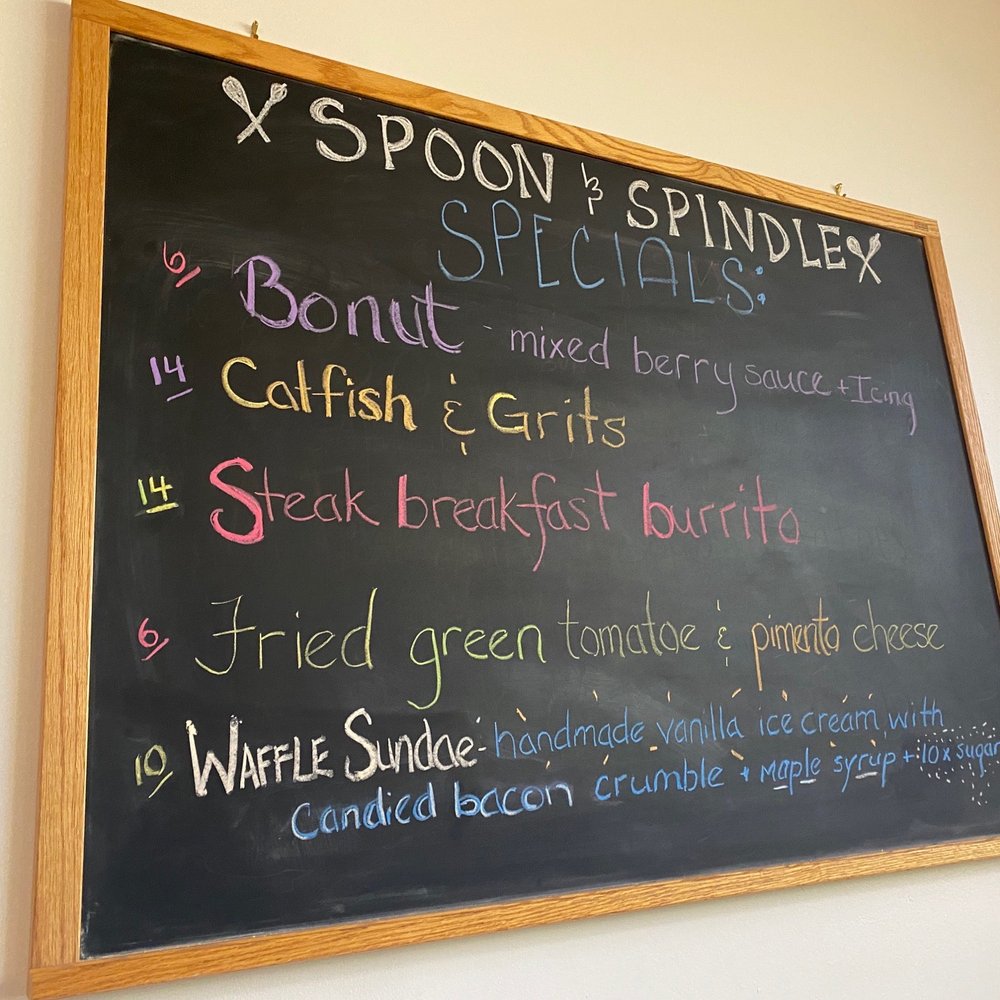 SPOON & SPINDLE
SPECIALS:
6 Bonut - mixed berry sauce + Icing
14 Catfish & Grits
14 Steak breakfast burrito
6 Fried green tomatoe & pimento cheese
10 WAFFLE Sundae- handmade vanilla ice cream, with
candied bacon crumble + maple syrup + 10x sugar